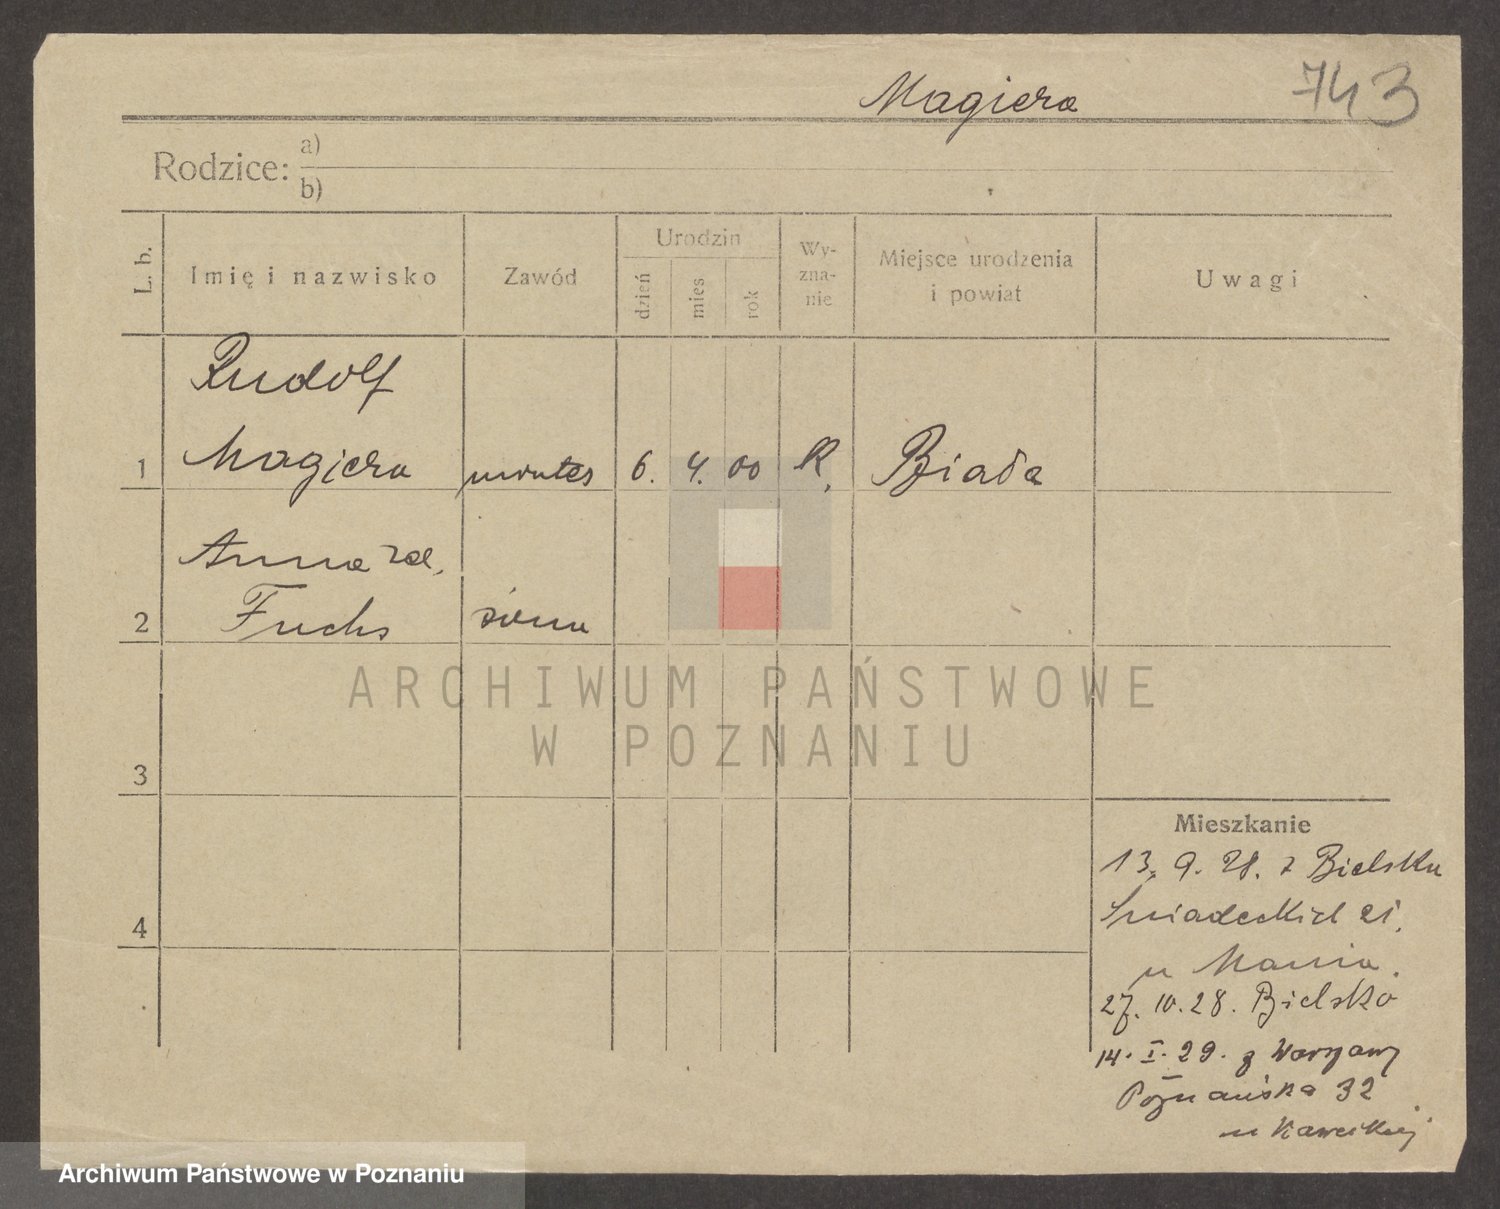 Magiera 743
Rodzice: a)
b)
L. b. Imię i nazwisko Zawód Urodzin dzień mies rok Wy-zna-nie Miejsce urodzenia i powiat Uwagi
Rudolf
1 Magiera monter 6. 4. 00 R. Biała
Anna zd.
2 Fuchs żona
3
4
Mieszkanie
13. 9. 28. z Bielsku
Śniadeckich 21.
u
27. 10. 28. Bielsko
14. I. 29. z Warszawy
Poznańska 32
u
ARCHIWUM PAŃSTWOWE
W POZNANIU
Archiwum Państwowe w Poznaniu